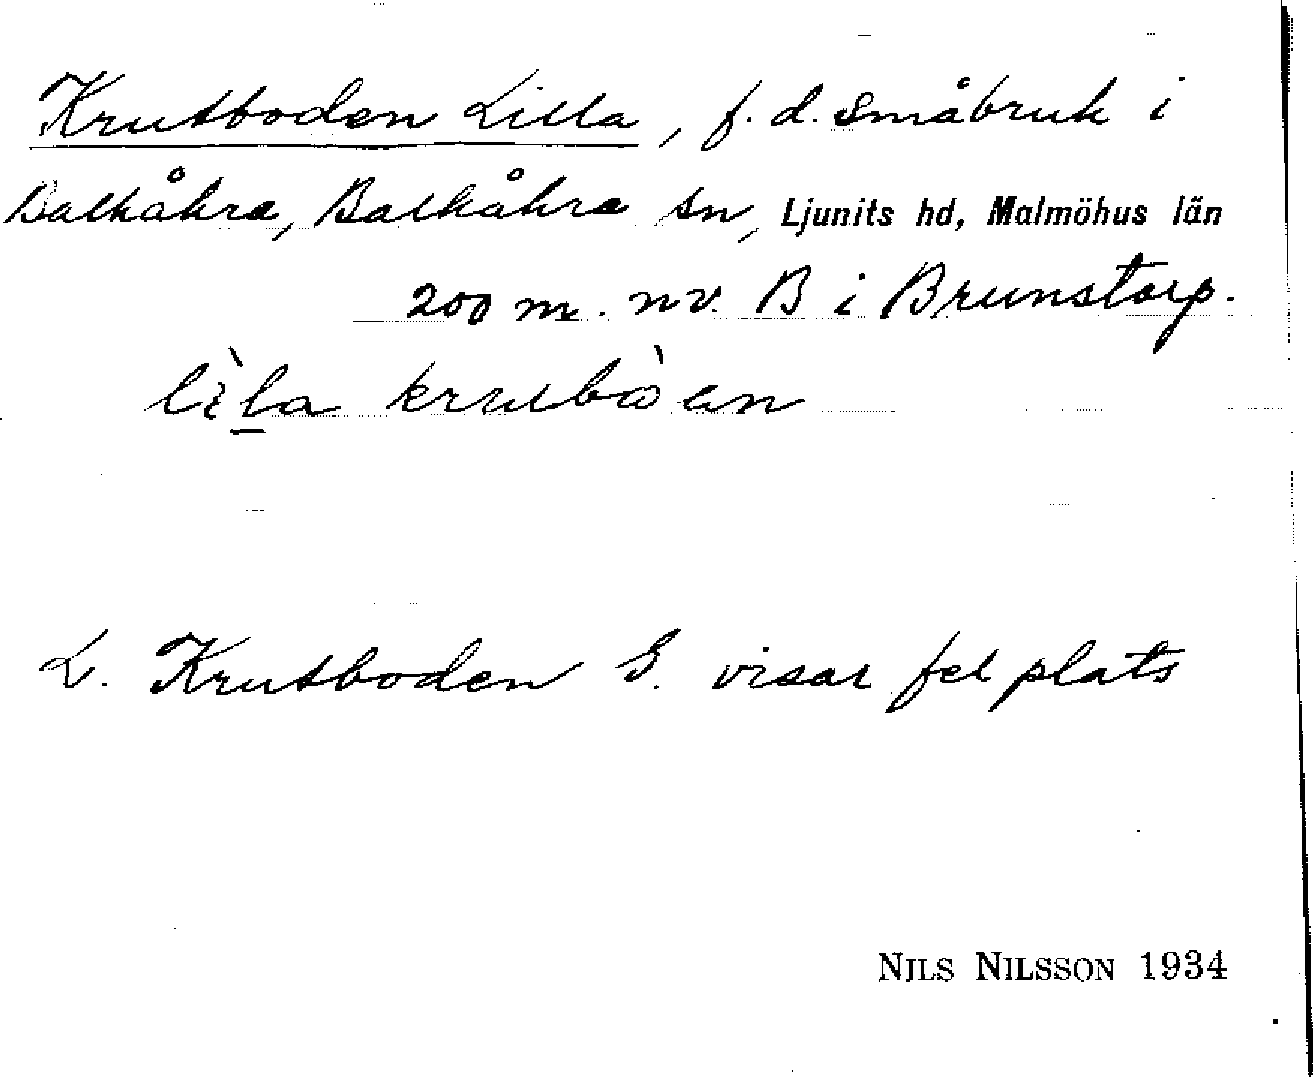 Krutboden Lilla, f.d. småbruk i
Balkåkra, Balkåkra sn, Ljunits hd, Malmöhus län
200 m. nv. B i Brunstorp.
lìla krutbòen
L. Krutboden G. visar fel plats
NILS NILSSON 1934